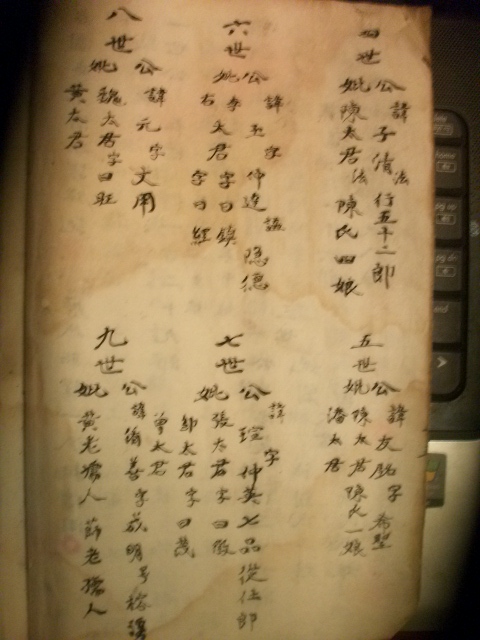 四世
公諱子倩法行五十二郎
妣陳太君法陳氏四娘
五世
公諱友銘字希聖
妣陳太君陳氏一娘
潘太君
六世
公諱五字仲達諡隱德
妣李太君字曰鎮
右字曰經
七世
公諱瑄字仲英七品從仕郎
妣張太君字曰敬
邱太君字曰茂
曾太君
八世
公諱元字文用
妣魏太君字曰旺
黃太君
九世
公諱善字明号
妣黃老孺人薛老孺人